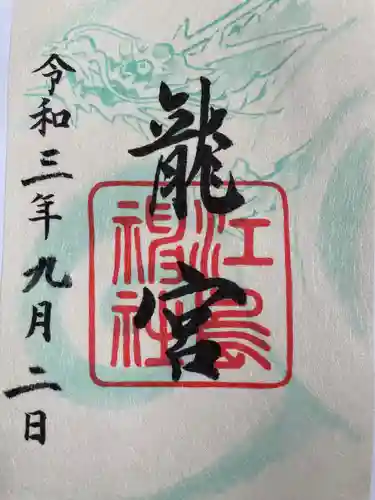 龍宮
江島
神社
令和三年九月二日